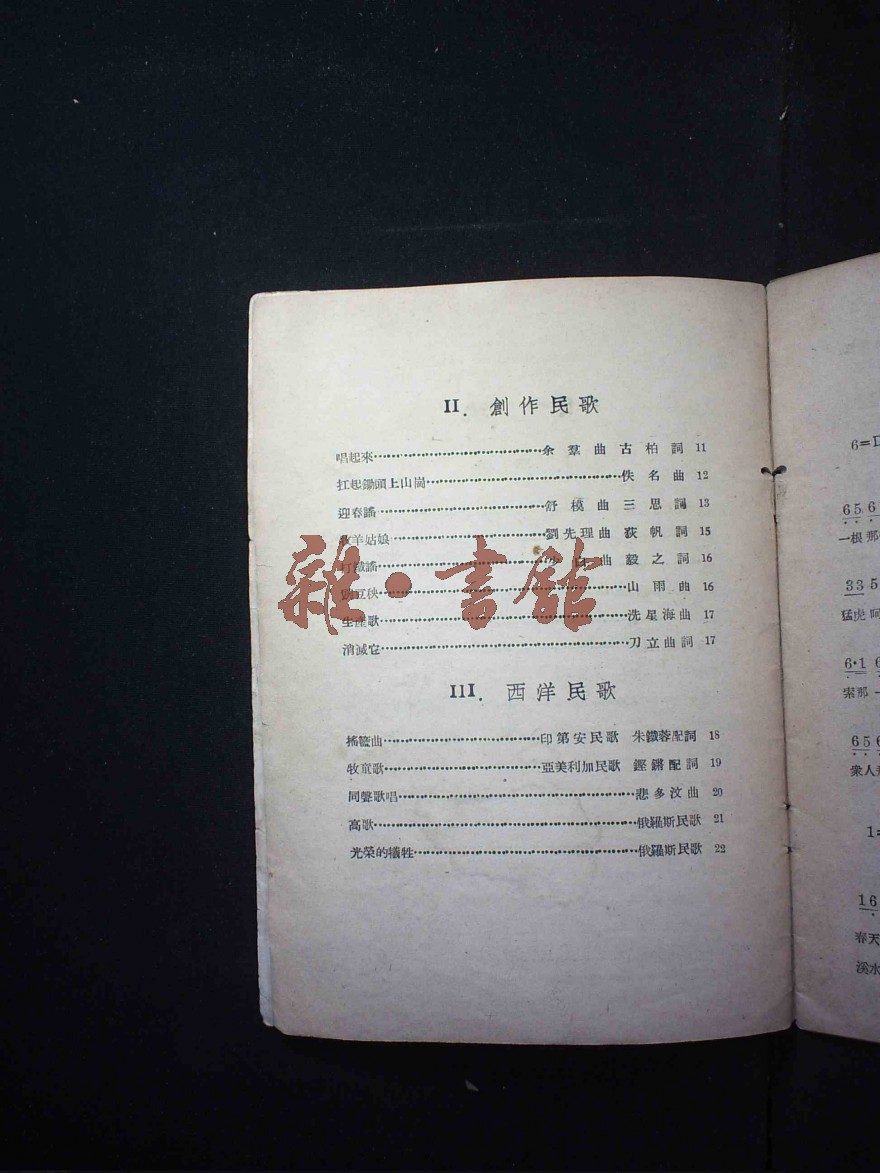 II. 創作民歌
唱起來 余羣曲 古柏詞 11
扛起鋤頭上山崗 佚名曲 12
迎春謠 舒模曲 三思詞 13
牧羊姑娘 劉先理曲 荻帆詞 15
打鐵謠 曲 毅之詞 16
豆秧 山雨曲 16
生產歌 洗星海曲 17
消滅它 刀立曲詞 17
III. 西洋民歌
搖籃曲 印第安民歌 朱鐵蓉配詞 18
牧童歌 亞美利加民歌 鏗鏘配詞 19
同聲歌唱 悲多汶曲 20
高歌 俄羅斯民歌 21
光榮的犧牲 俄羅斯民歌 22
雜·書館
6=D
6 5 6
一根那
3 3 5
猛虎呵
6·1 6
索那一
6 5 6
衆人
1=
1 6
春天
溪水